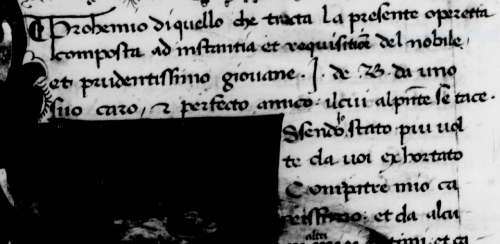 Prohemio di quello che tracta la presente operetta
composta ad instantia et requisitiōe del nobile,
et prudentissimo giouane. J. de B. da uno
suo caro, & perfecto amico. il cui al pn̄te se tace.
Ssendo lo stato piu uol
te da uoi exhortato
Compatre mio ca
rissimo: et da alcu
altri
et ca